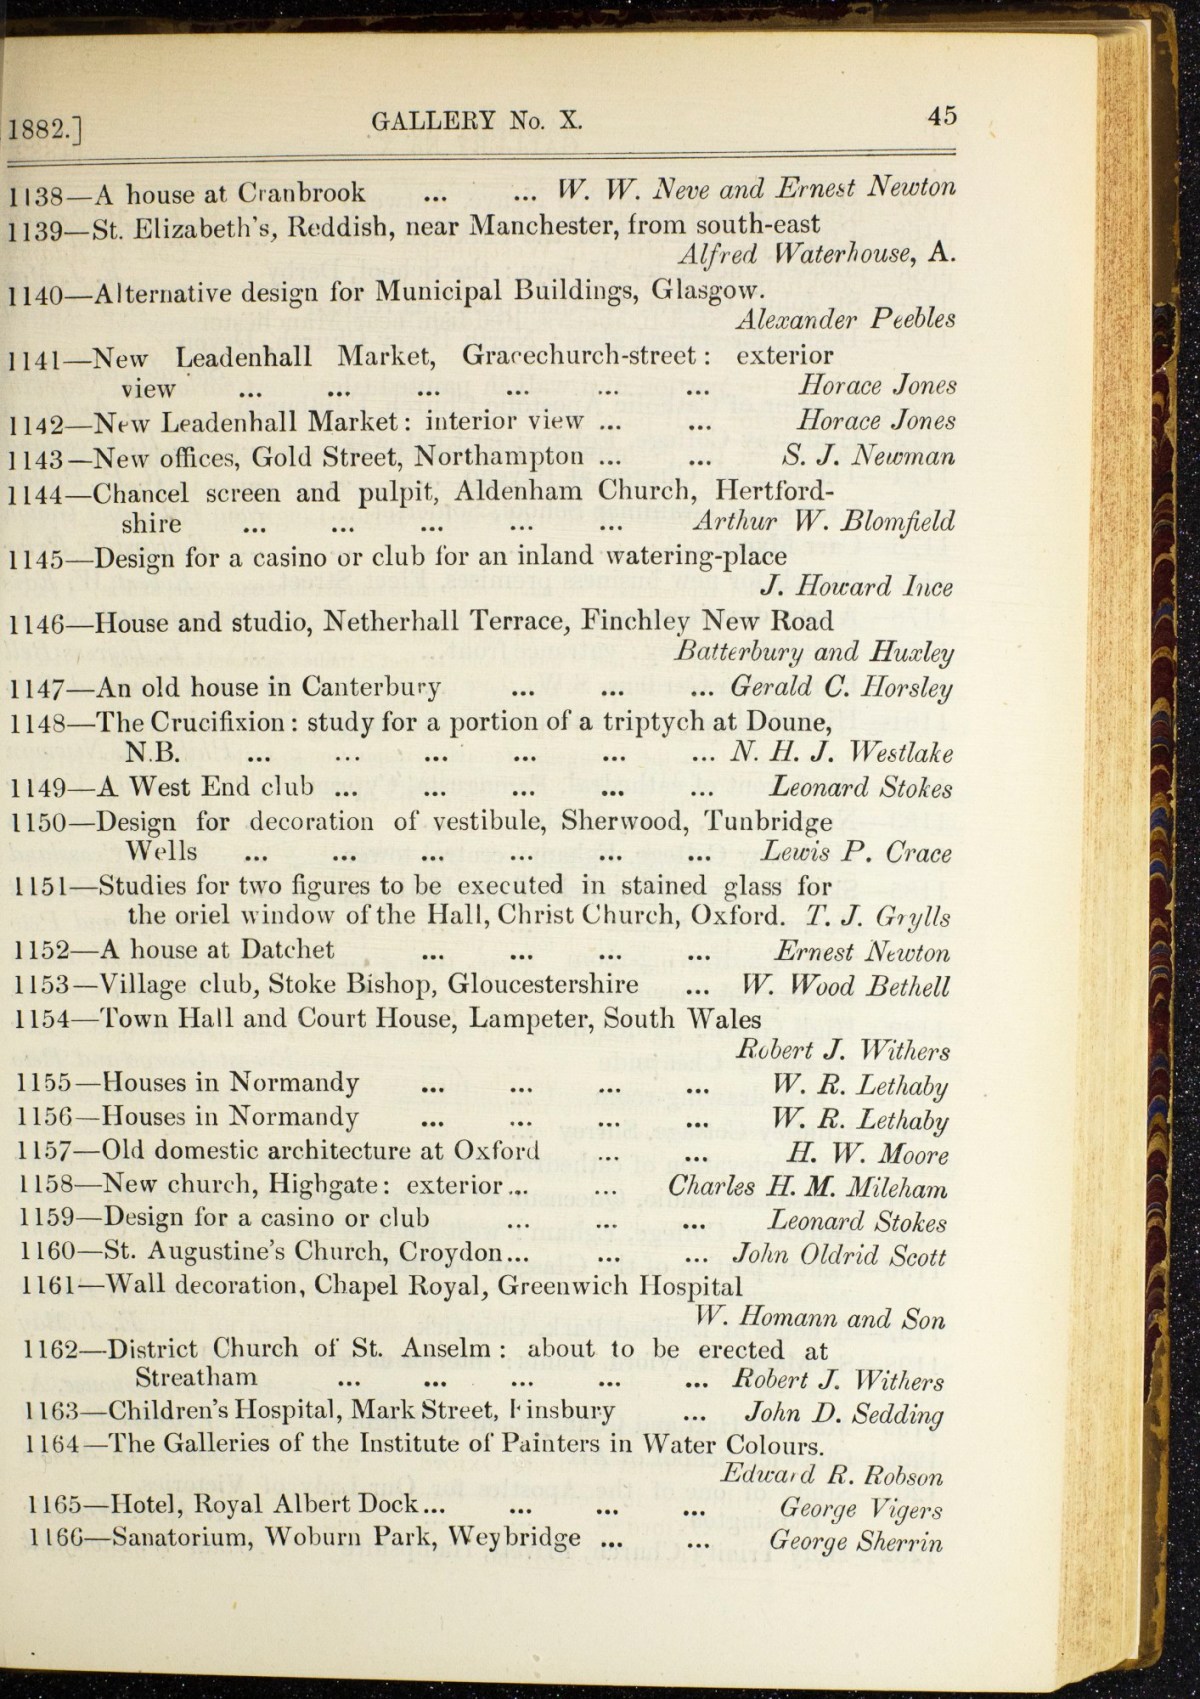 1882.] GALLERY No. X. 45
1138—A house at Cranbrook ... ... W. W. Neve and Ernest Newton
1139—St. Elizabeth's, Reddish, near Manchester, from south-east
Alfred Waterhouse, A.
1140—Alternative design for Municipal Buildings, Glasgow.
Alexander Peebles
1141—New Leadenhall Market, Gracechurch-street: exterior
view ... ... ... ... ... ... Horace Jones
1142—New Leadenhall Market: interior view ... ... Horace Jones
1143—New offices, Gold Street, Northampton ... ... S. J. Newman
1144—Chancel screen and pulpit, Aldenham Church, Hertford-
shire ... ... ... ... ... Arthur W. Blomfield
1145—Design for a casino or club for an inland watering-place
J. Howard Ince
1146—House and studio, Netherhall Terrace, Finchley New Road
Batterbury and Huxley
1147—An old house in Canterbury ... ... ... Gerald C. Horsley
1148—The Crucifixion: study for a portion of a triptych at Doune,
N.B. ... ... ... ... ... ... N. H. J. Westlake
1149—A West End club ... ... ... ... ... Leonard Stokes
1150—Design for decoration of vestibule, Sherwood, Tunbridge
Wells ... ... ... ... ... ... Lewis P. Crace
1151—Studies for two figures to be executed in stained glass for
the oriel window of the Hall, Christ Church, Oxford. T. J. Grylls
1152—A house at Datchet ... ... ... ... Ernest Newton
1153—Village club, Stoke Bishop, Gloucestershire ... W. Wood Bethell
1154—Town Hall and Court House, Lampeter, South Wales
Robert J. Withers
1155—Houses in Normandy ... ... ... ... W. R. Lethaby
1156—Houses in Normandy ... ... ... ... W. R. Lethaby
1157—Old domestic architecture at Oxford ... ... H. W. Moore
1158—New church, Highgate: exterior... ... Charles H. M. Mileham
1159—Design for a casino or club ... ... ... Leonard Stokes
1160—St. Augustine's Church, Croydon... ... ... John Oldrid Scott
1161—Wall decoration, Chapel Royal, Greenwich Hospital
W. Homann and Son
1162—District Church of St. Anselm: about to be erected at
Streatham ... ... ... ... ... Robert J. Withers
1163—Children's Hospital, Mark Street, Finsbury ... John D. Sedding
1164—The Galleries of the Institute of Painters in Water Colours.
Edward R. Robson
1165—Hotel, Royal Albert Dock... ... ... ... George Vigers
1166—Sanatorium, Woburn Park, Weybridge ... ... George Sherrin